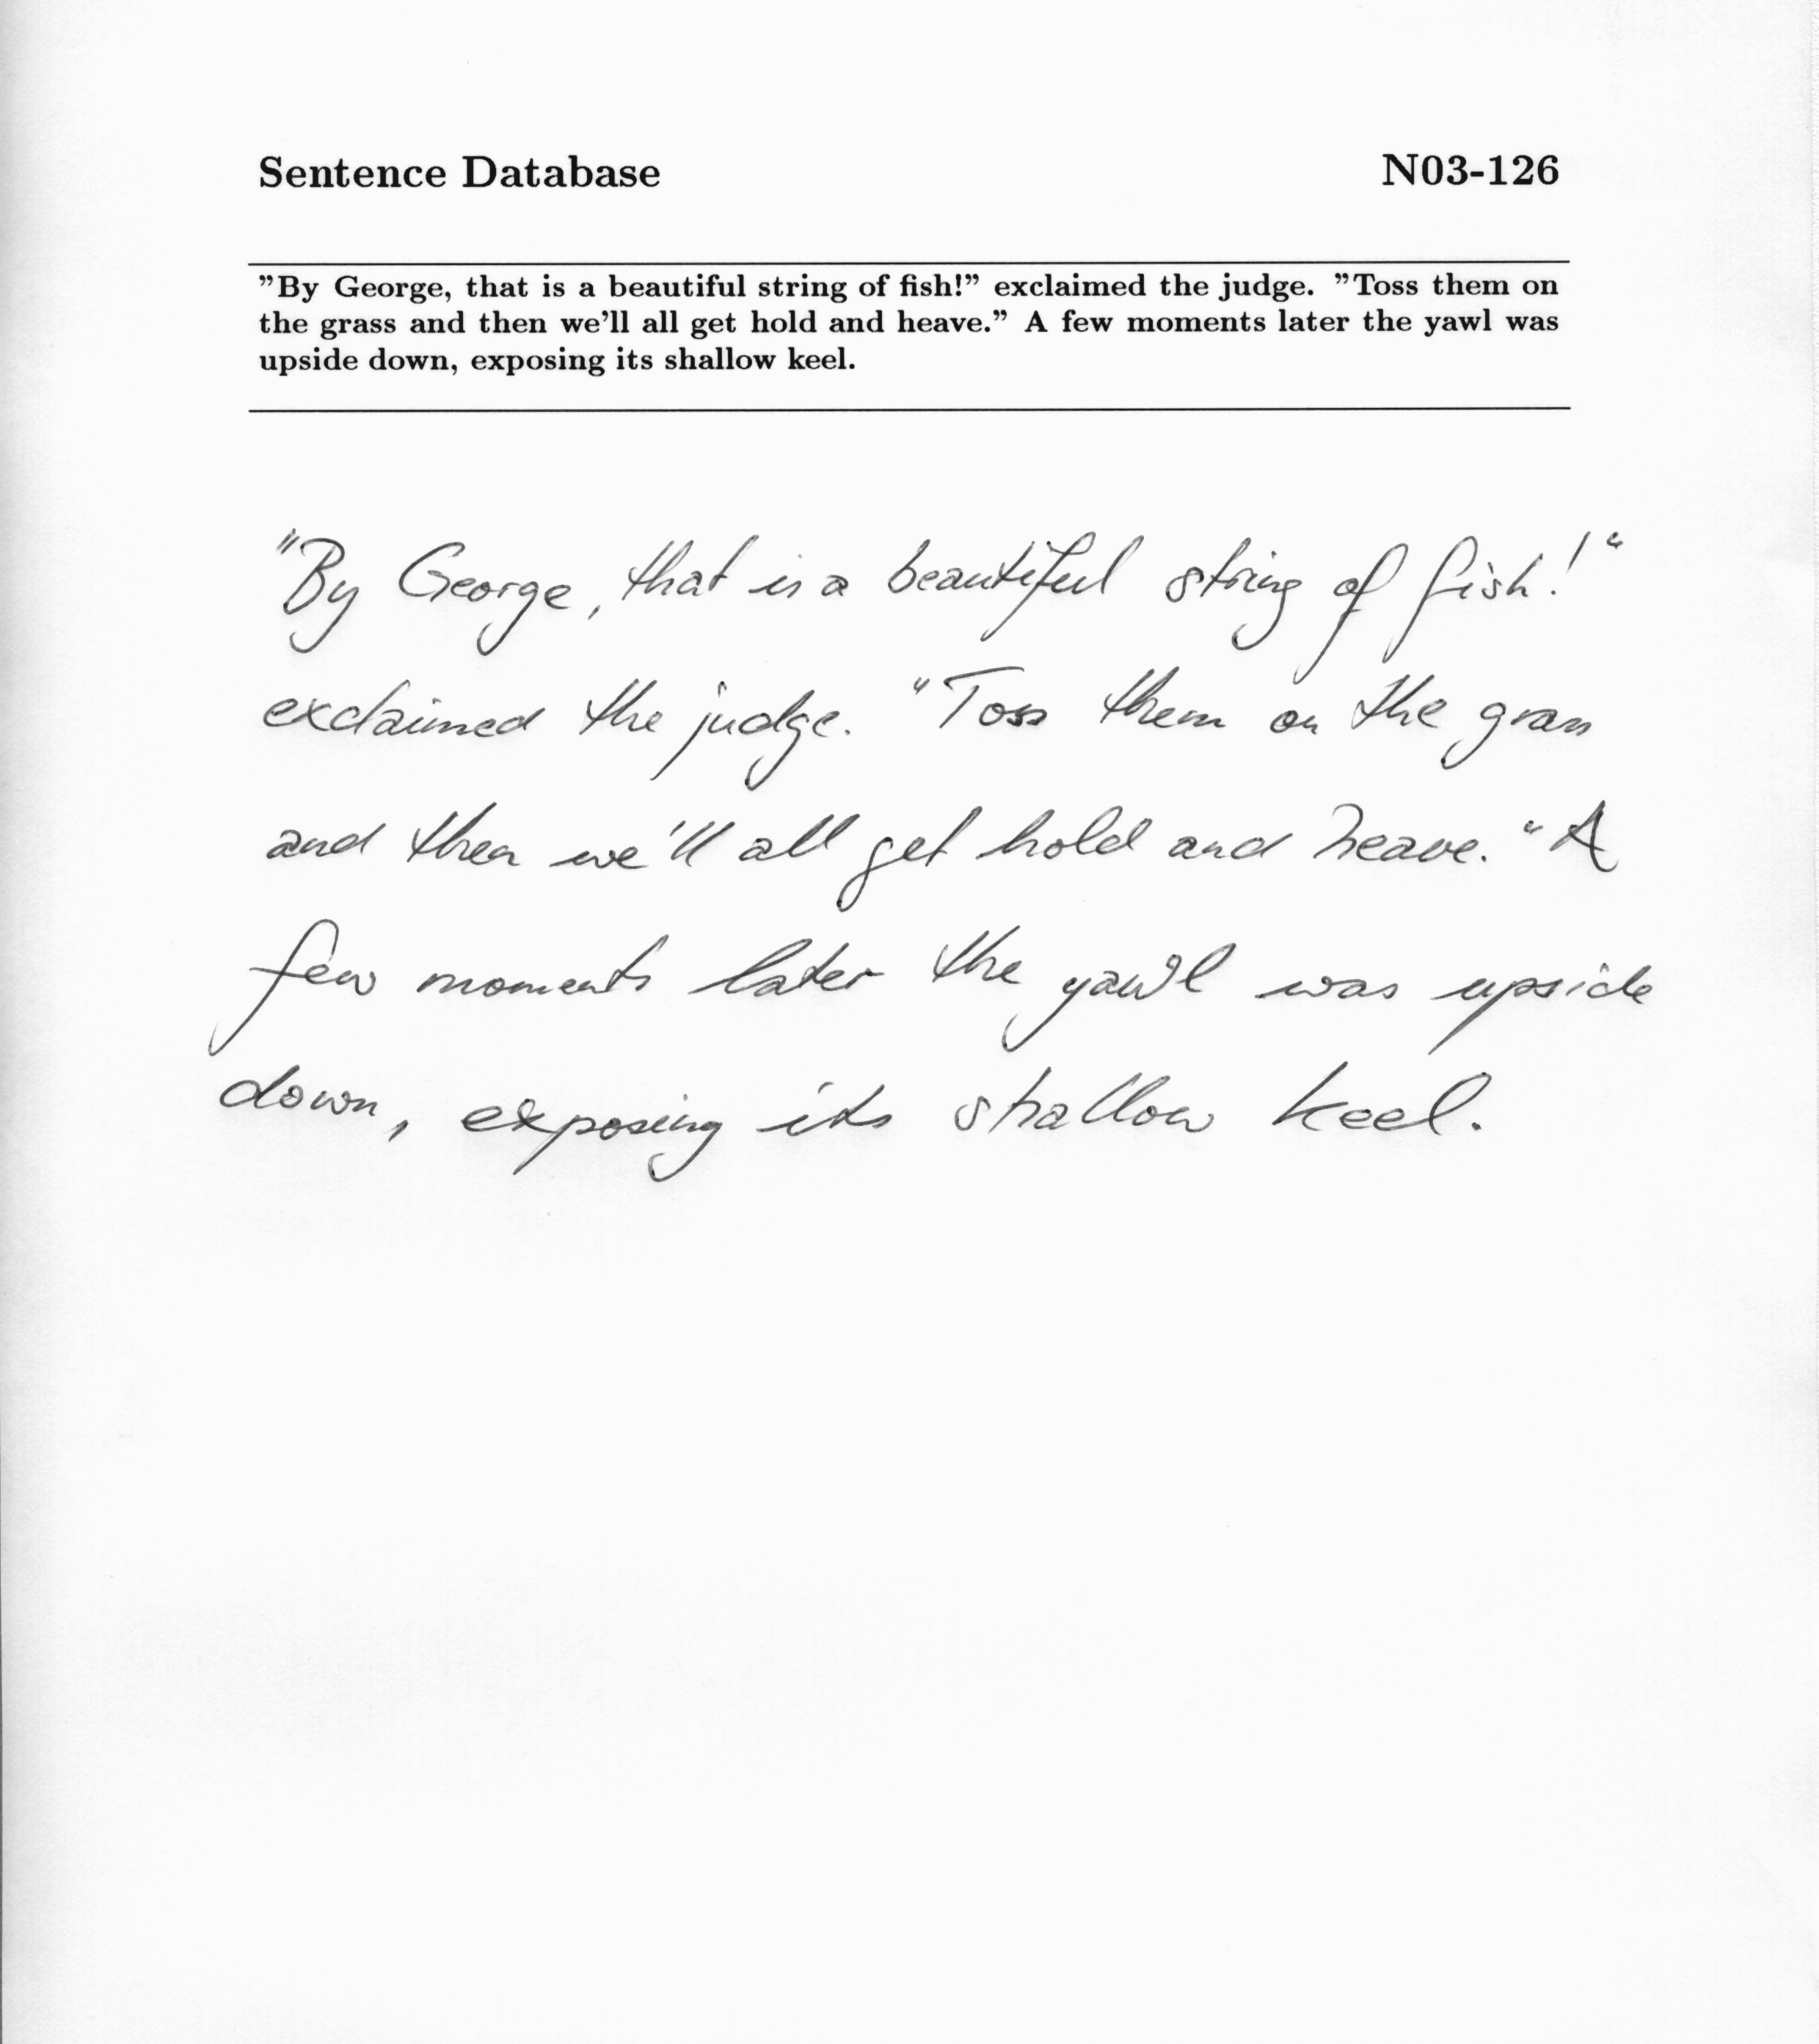 Sentence Database N03-126
”By George, that is a beautiful string of fish!” exclaimed the judge. ”Toss them on
the grass and then we’ll all get hold and heave.” A few moments later the yawl was
upside down, exposing its shallow keel.
"By George, that is a beautiful string of fish!"
exclaimed the judge. "Toss them on the grass
and then we'll all get hold and heave." A
few moments later the yawl was upside
down, exposing its shallow keel.